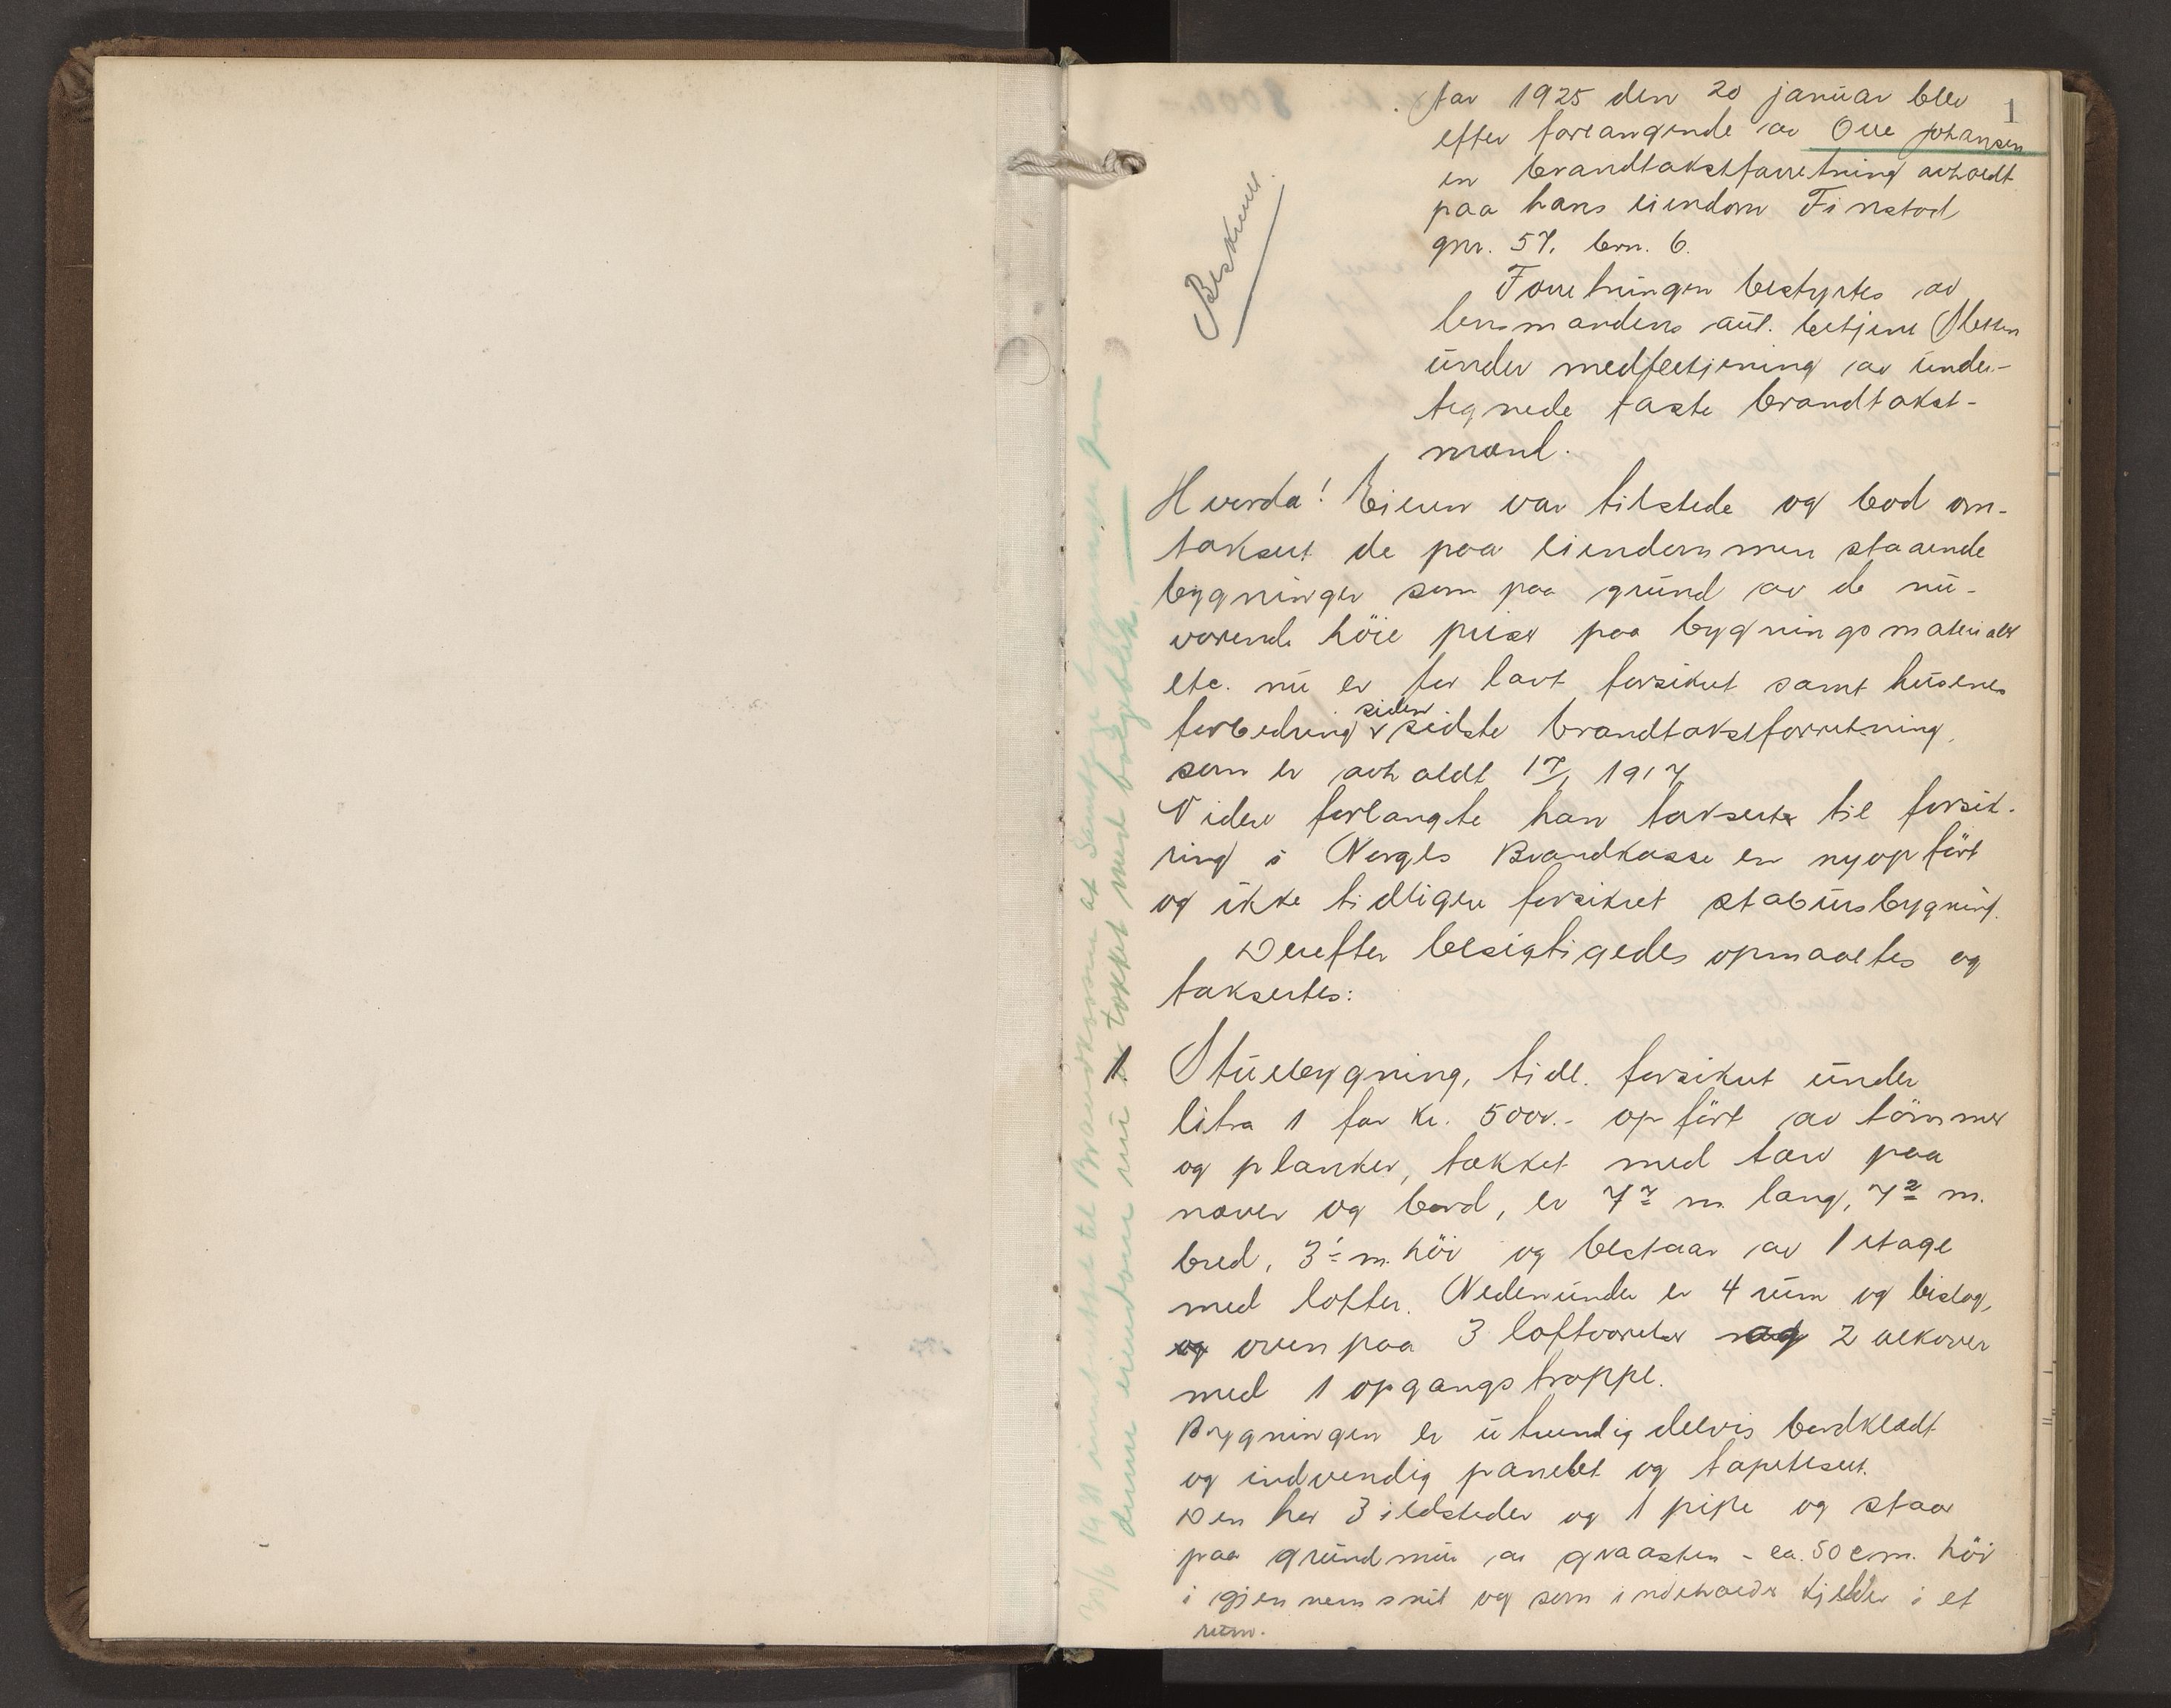 1
Aar 1925 den 20 januar blev
efter forlangende av Ole Johansen
en brandtakstforretning avholdt
paa hans eiendom Finstad
gnr. 57, brn. 6.
Forretningen bestyrtes av
lensmandens aut. betjent
under medbetjening av under-
tegnede faste brandtakst-
mænd.
Beskrevet.
Hvorda! Eieren var tilstede og bad om-
taksert de paa eiendommen staaende
bygninger som paa grund av de nu-
værende höie priser paa bygningsmaterialer
etc. nu er for lavt forsikret samt husenes
forbedring siden sidste brandtakstforretning,
som er avholdt 17/1 1917
Videre forlangte han taksert til forsik-
ring i Norges Brandkasse en nyopfört
og ikke tidligere forsikret stabursbygning.
Derefter besigtigedes opmaaltes og
taksertes:
1 Stuebygning, tidl. forsikret under
litra 1 for kr. 5000.- opfört av tömmer
og planker, tækket med torv paa
næver og bord, er 7 7 m. lang, 7 2 m.
bred, 3 1 m. höi og bestaar av 1 etage
med lofter. Nedenunder er 4 rum og bislag,
og ovenpaa 3 loftværelser og 2 alkover
med 1 opgangstrappe.
Bygningen er utvendig delvis bordklædt
og indvendig panelet og tapetsert.
Den har 3 ildsteder og 1 pipe og staar
paa grundmur av graasten - ca. 50 cm. höi
i gjennemsnit og som indeholder kjelder i et
rum.
1931 til Brandkassen at samtlige bygninger paa
denne eiendom nu er tækket med bölgeblik.